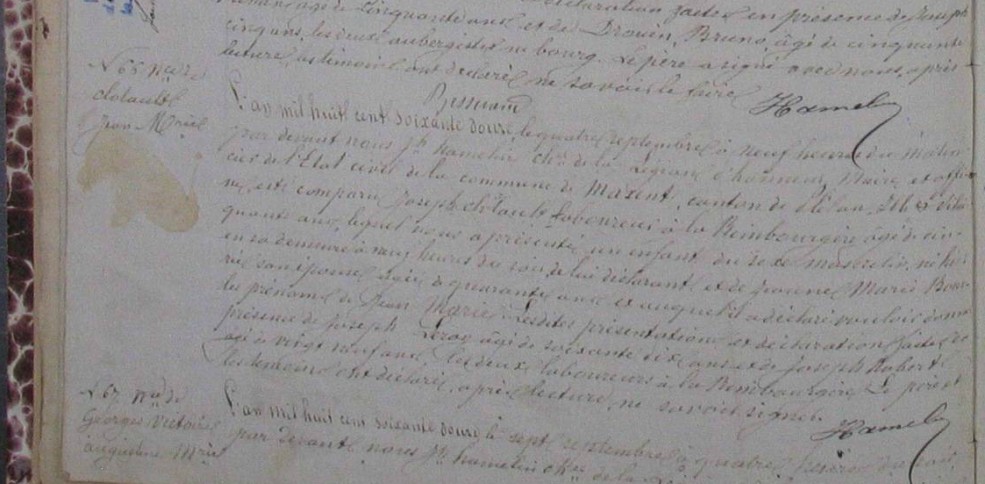 déclaration faite en présence de Joseph
âgé de cinquante ans et de Drouin, Bruno, âgé de cinquante
cinq ans, les deux aubergistes au bourg. Le père a signé avec nous, après
lecture, les témoins ont déclaré ne savoir le faire
Hamelin
N 66 Nce de
Jean Marie
L'an mil huit cent soixante douze, le quatre septembre à neuf heures du matin
par devant nous Jh hamelin Chr de la Légion d'honneur, Maire et offi-
cier de l'Etat civil de la commune de Maxent, canton de Plélan, Ille et Vilai-
ne, est comparu Joseph laboureur à la Reimbourgère âgé de cin-
quante ans, lequel nous a présenté un enfant du sexe masculin, né hier
en sa demeure à neuf heures du soir, de lui déclarant et de Marie
son épouse, âgée de quarante ans et auquel il a déclaré vouloir donner
les prénoms de Jean Marie. Lesdites présentation et déclaration faites en
présence de Joseph Leray âgé de soixante six ans et de Joseph Robert
âgé de vingt neuf ans, les deux laboureurs à la Reimbourgère. Le père et
les témoins ont déclaré, après lecture, ne savoir signer.
Hamelin
N 67 Nce de
Georges Victoire
Augustine Marie
L'an mil huit cent soixante douze le sept septembre à quatre heures du soir
par devant nous Jh hamelin Chr de la